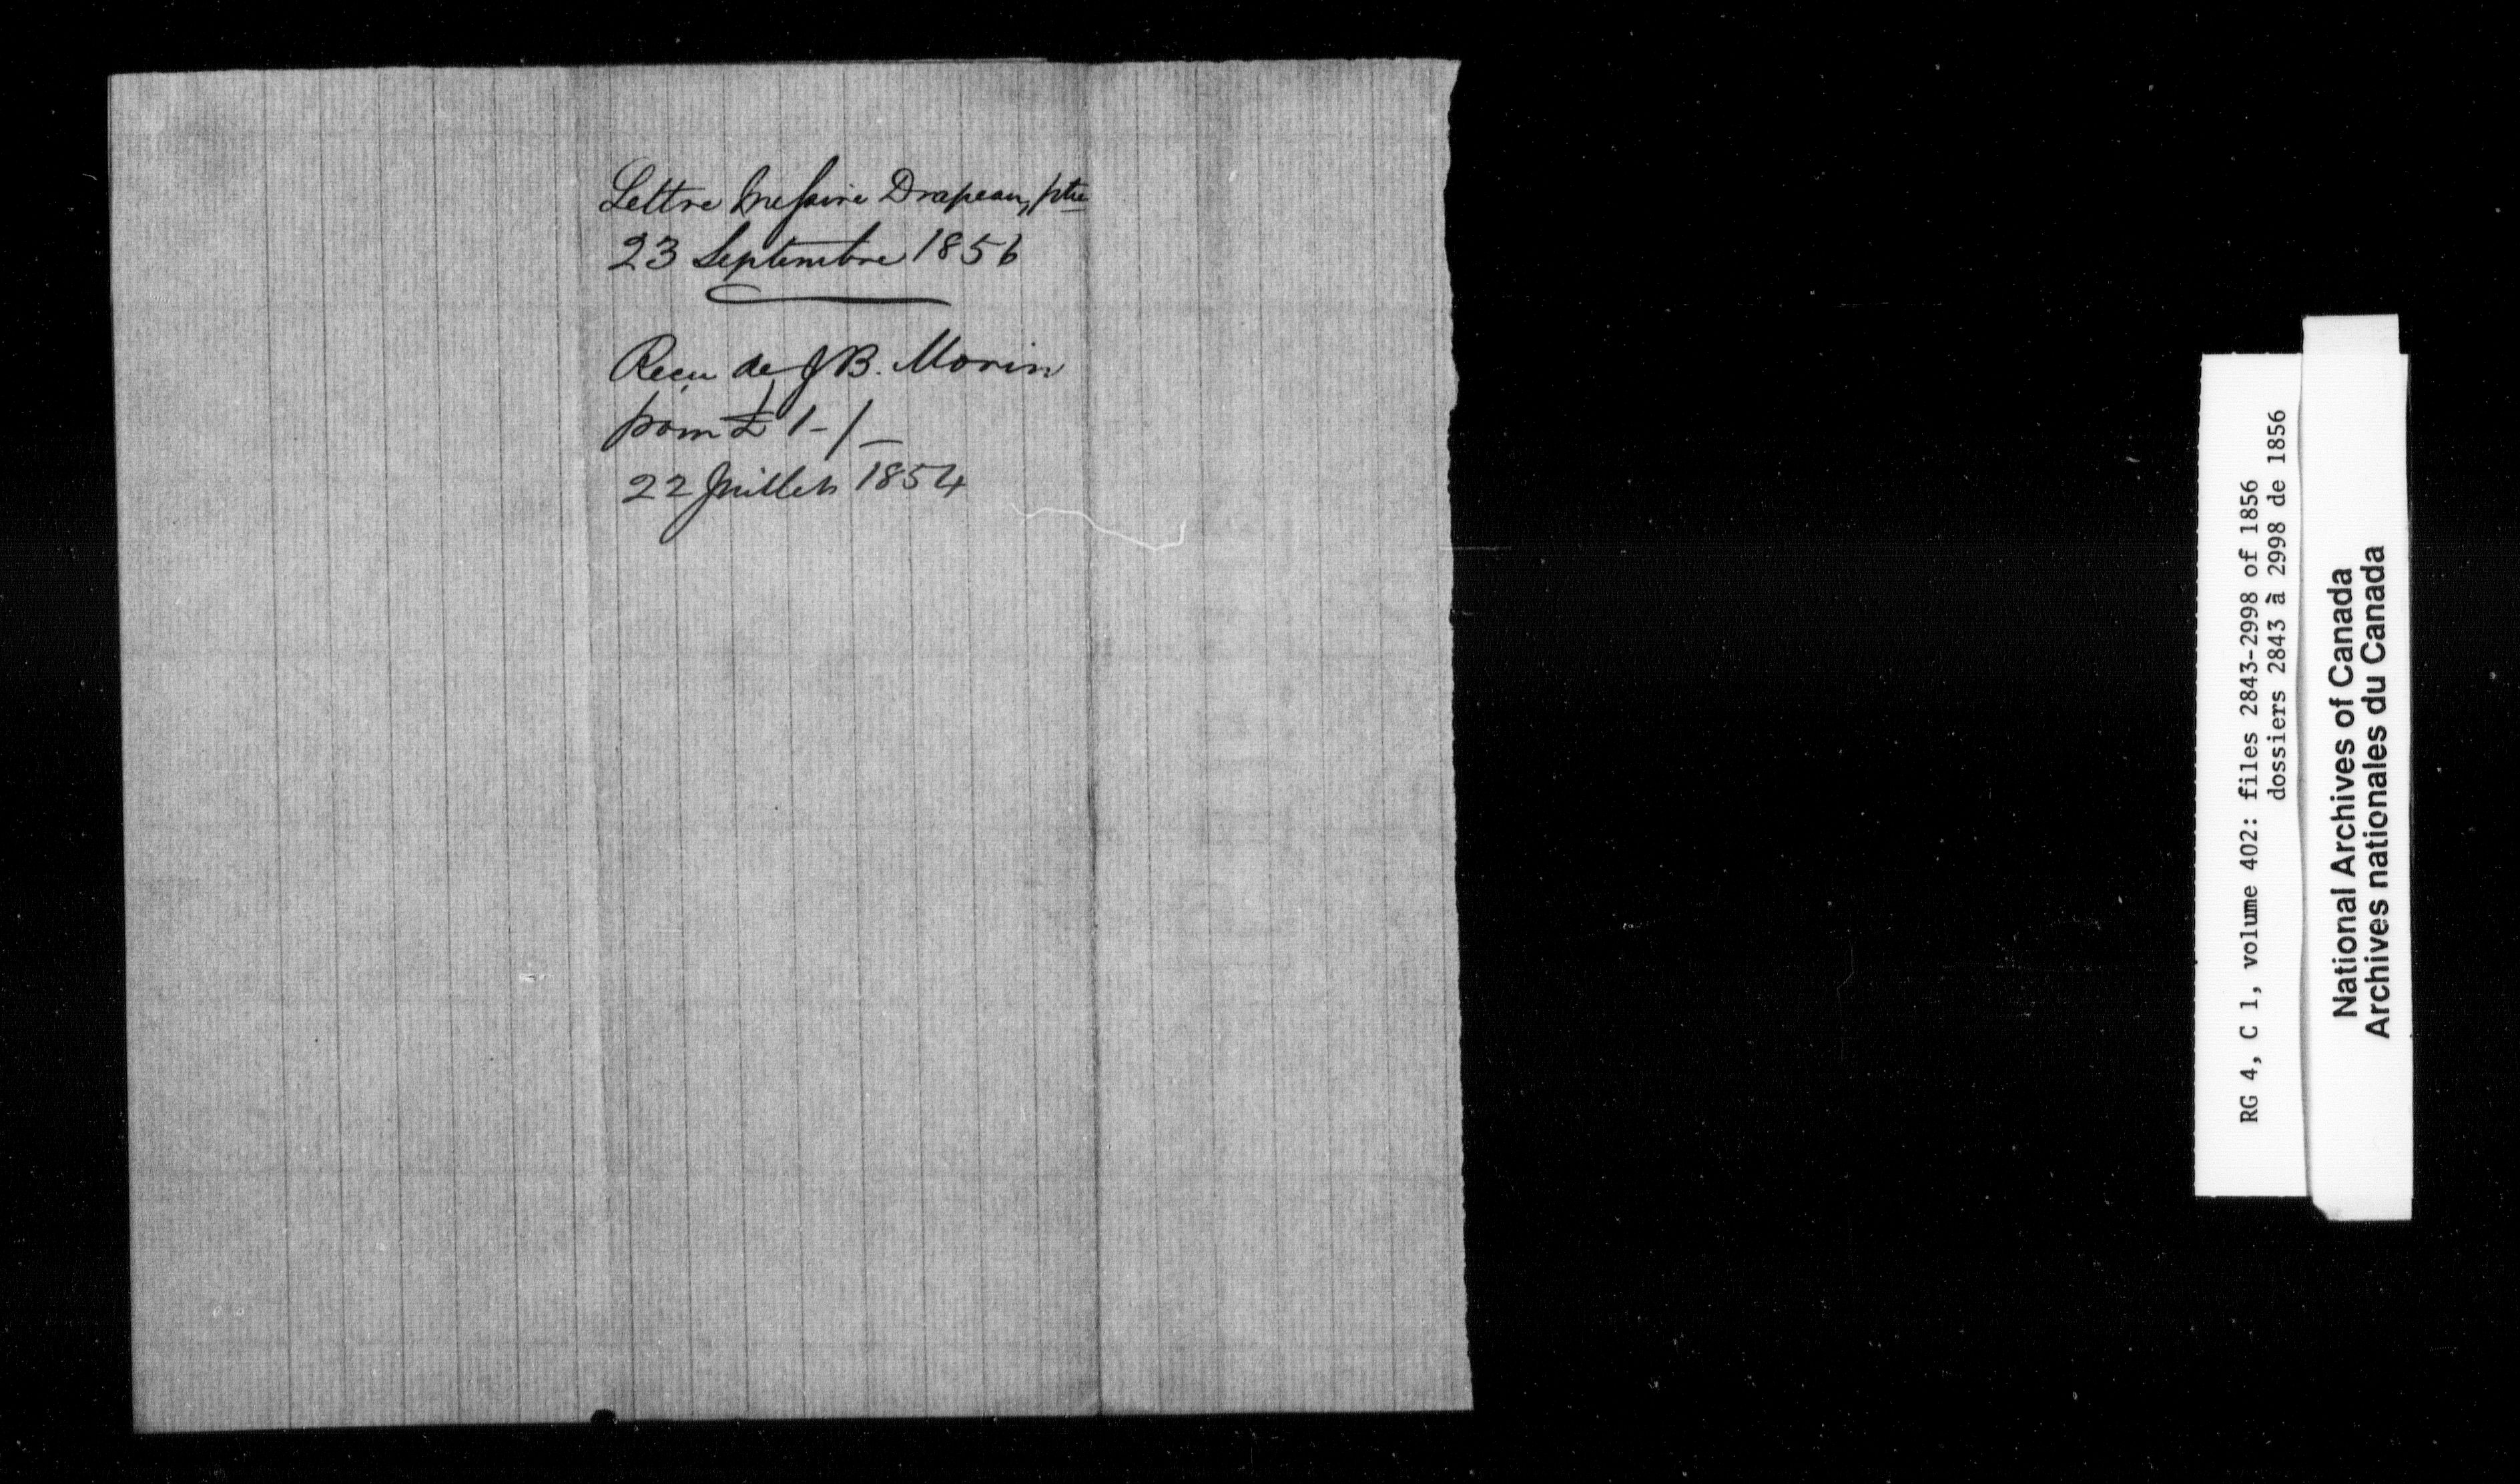 Lettre Messire Drapeau, ptre
23 Septembre 1856
Reçu de J B. Morin
pour £ 1 - / -
22 Juillet 1854
RG 4, C 1, volume 402: files 2843-2998 of 1856
dossiers 2843 à 2998 de 1856
National Archives of Canada
Archives nationales du Canada